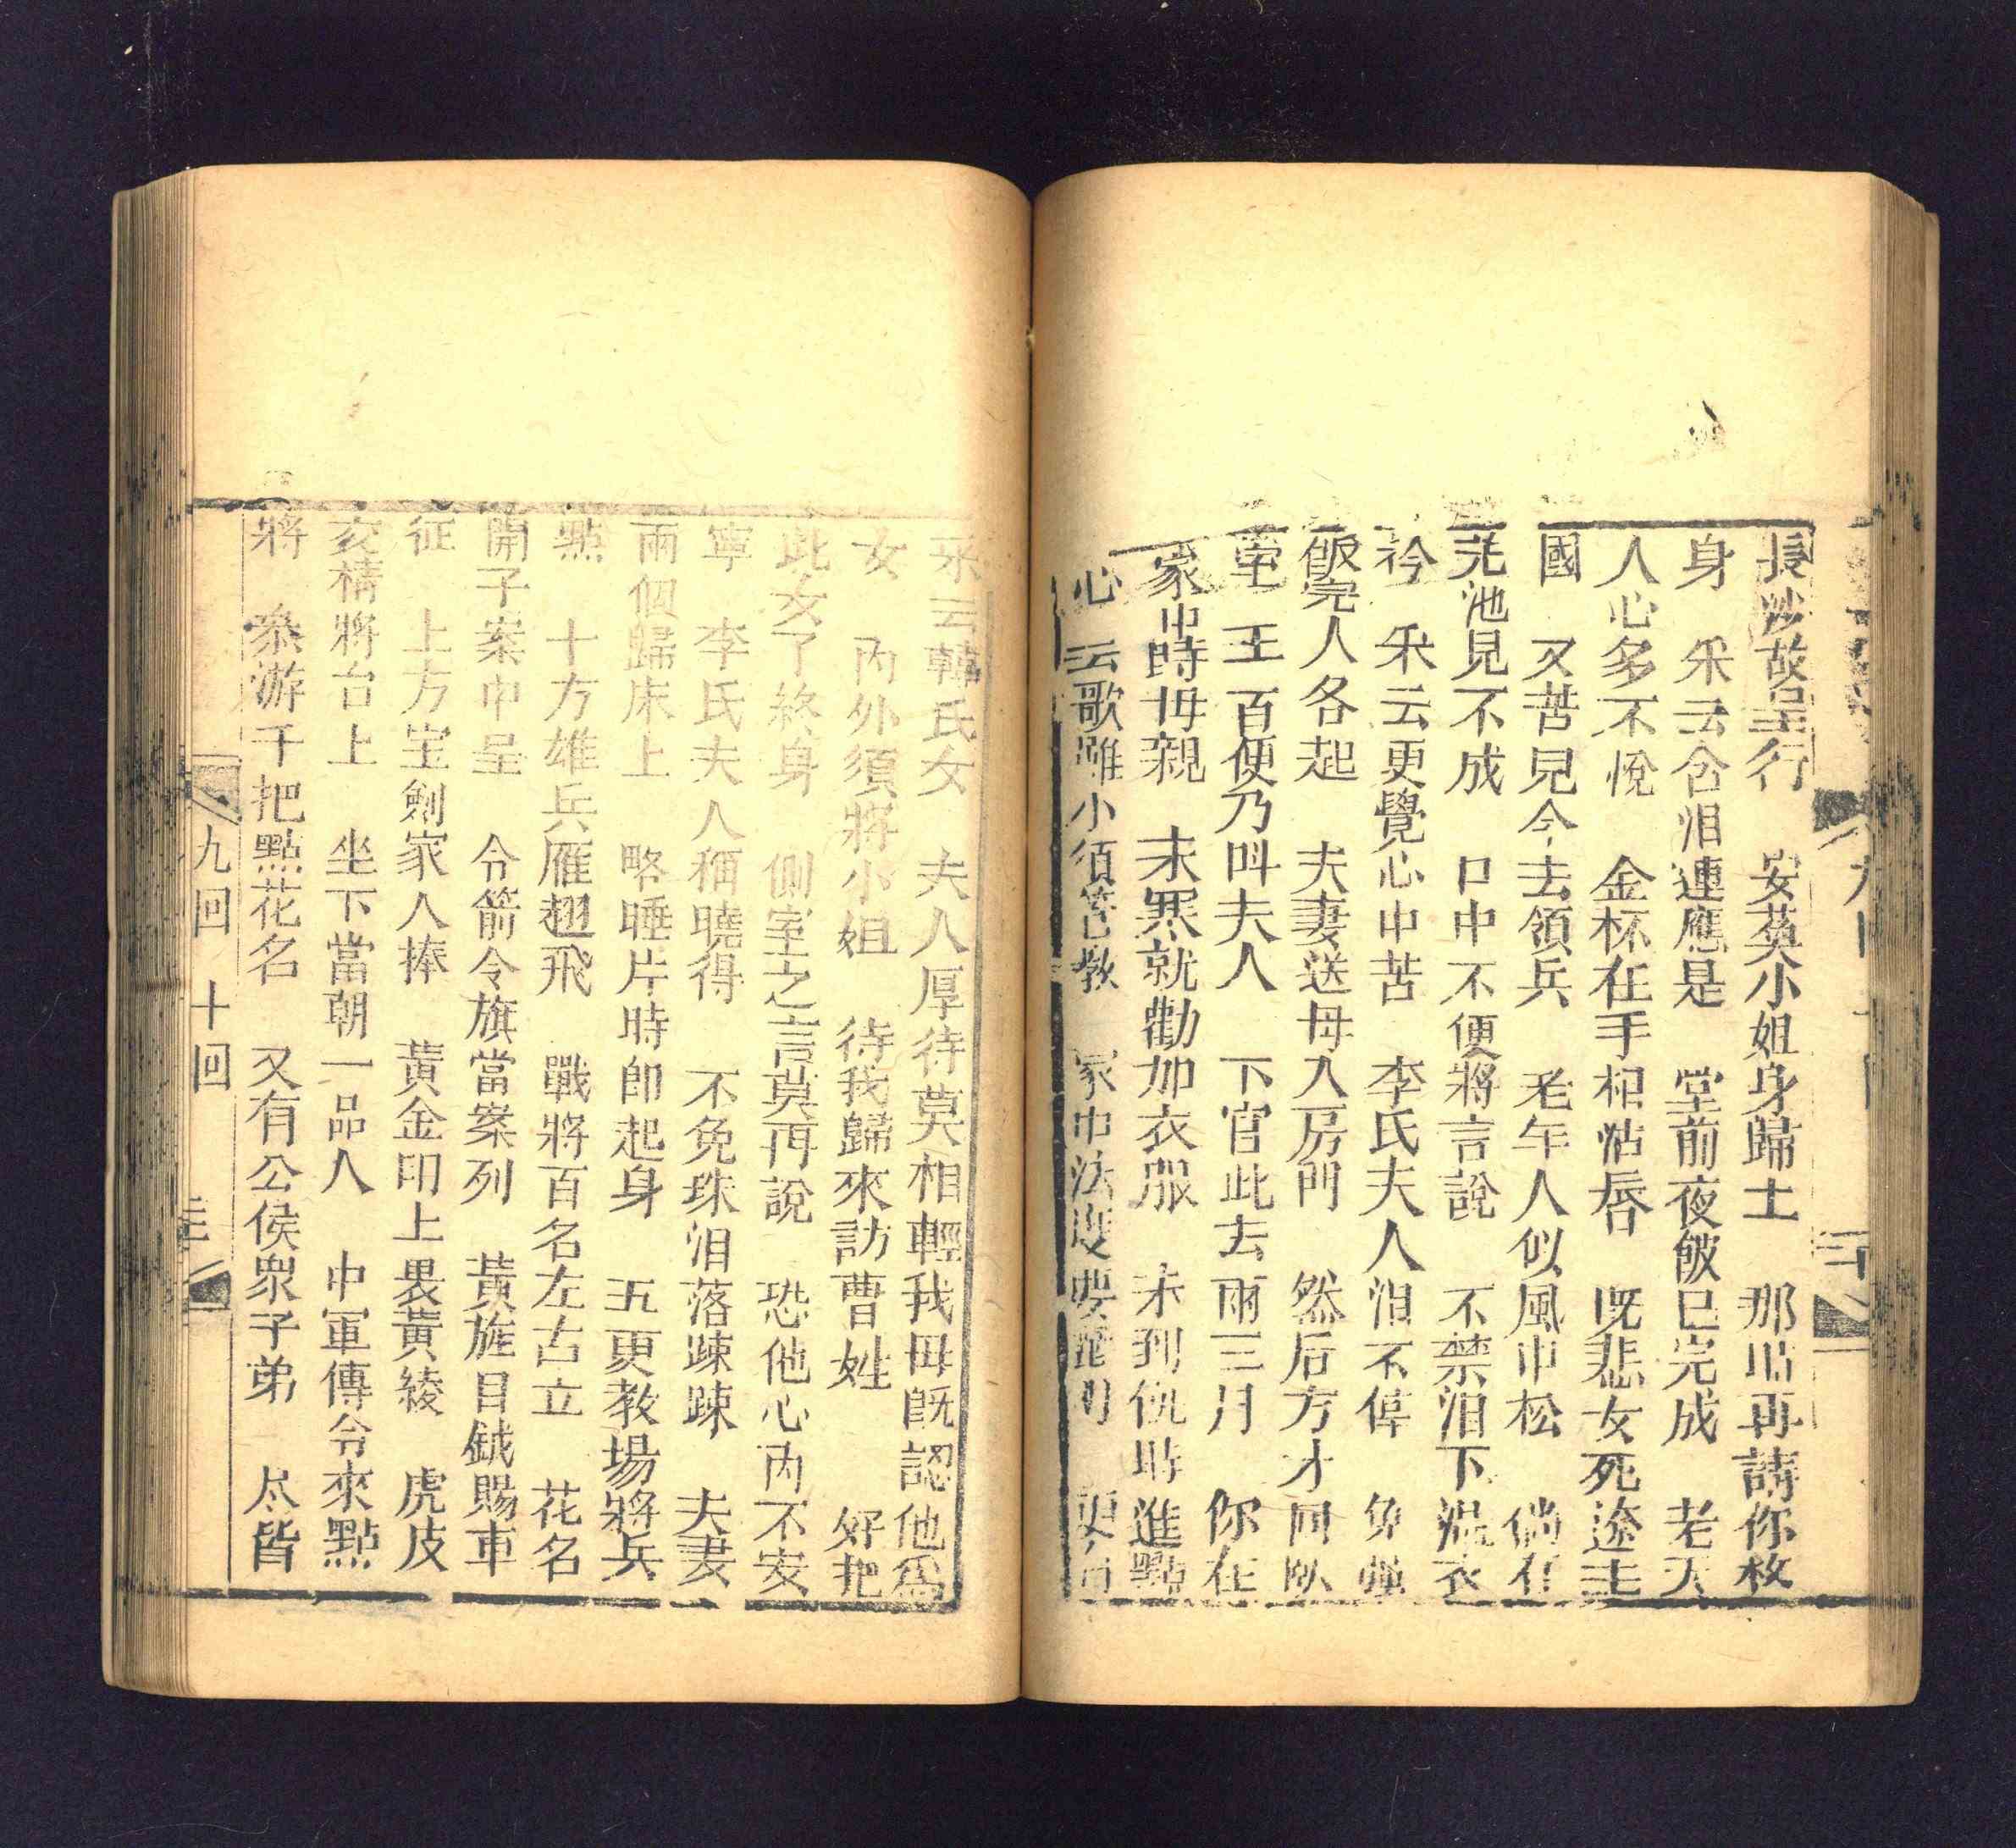 長沙故呈行　安英小姐身歸土　那堪再請你救
身　采云含泪連應是　堂前夜飯已完成　老夫
人心多不悅　金杯在手怕沾唇　既悲女死途
國　又苦兒今去領兵　老年人似風巾松　倘在
見不成　口中不便將言說　不禁泪下濕衣
衿　采云更覺心中苦　李氏夫人泪不停　免強
飯完人各起　夫妻送母入房門　然后方才回臥
室　王百便乃叫夫人　下官此去兩三月　你在
家中時母親　未寒就勸加衣服　未到飢時進點
心　云歌雖小須管教　家中法度要
采云韓氏女　夫人厚待莫相輕我母既認他為
女　內外須將小姐　待我歸來訪曹姓　好把
此女了終身　側室之言莫再說　恐他心內不安
寧　李氏夫人稱曉得　不免珠泪落疎疎　夫妻
兩個歸床上　略睡片時即起身　五更教場將兵
點　十方雄兵雁翅飛　戰將百名左右立　花名
開子案巾呈　令箭令旗當案列　黃旌目鉞賜車
征　上方宝劍家人捧　黃金印上畏黃綾　虎皮
交椅將台上　坐下當朝一品人　中軍傳令來點
將　叅游千把點花名　又有公侯眾子弟　尽皆
九回　十回